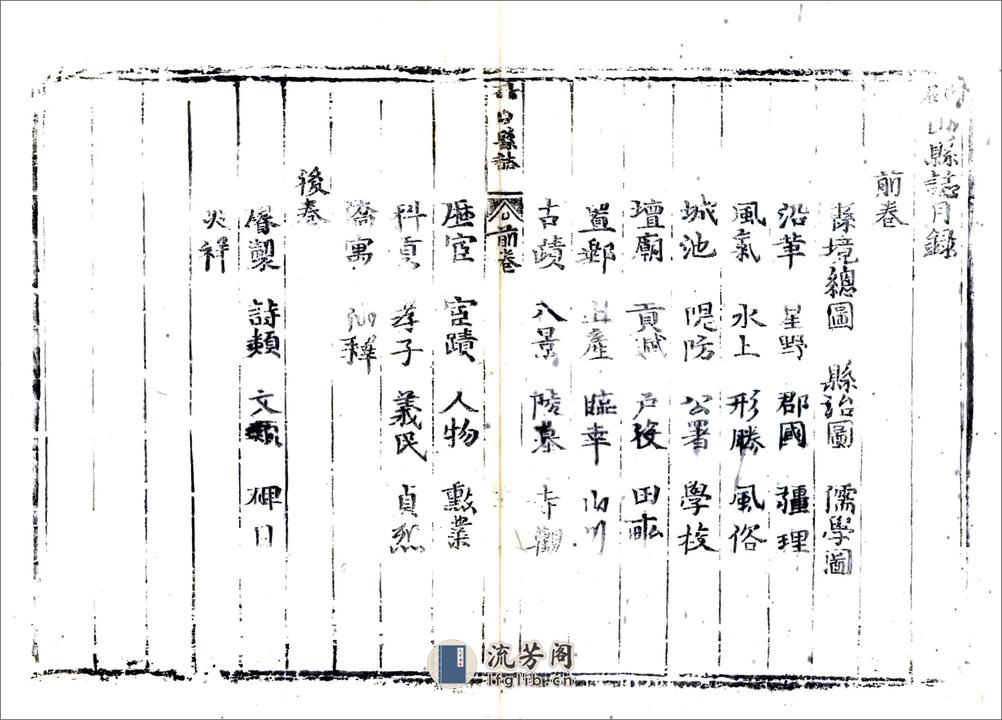 山縣誌目錄
前卷
縣境總圖 縣治圖 儒學圖
沿革 星野 郡國 疆理
風氣 水土 形勝 風俗
城池 隄防 公署 學校
壇廟 貢減 戶役 田畝
置郵 土產 臨幸 山川
古蹟 八景 陵墓 寺觀
山縣誌 前卷
歷宦 宦蹟 人物 勲業
科貢 孝子 義民 貞烈
寓 仙釋
後卷
睿製 詩類 文類 碑目
災祥
流芳阁
lfglib.cn